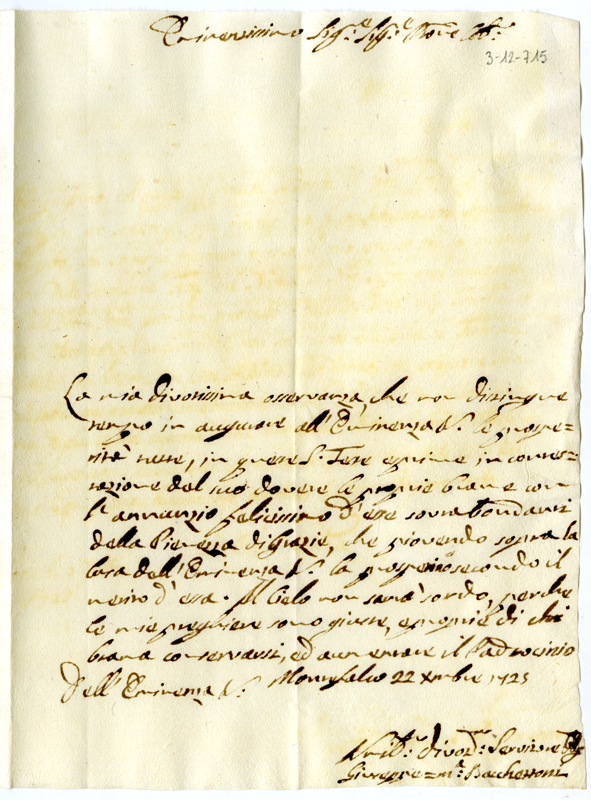 Eminentissimo Sig.re Sig.re Prone
3-12-715
La mia divotissima osservanza, che non distingue
tempo in augurare all'Eminenza V.a le prospe=
rità tutte, in queste S.te Feste esprime in conter=
tazione del suo dovere le proprie brame con
l'annunzio felicissimo d'esse sovrabbondanti
della Pienezza di Grazie, che piovendo sopra la
Casa dell'Eminenza V.a la prosperino secondo il
merito d'essa. Il Cielo non sarà sordo, perche
le mie preghiere sono giuste, e proprie di chi
brama conservarsi, ed aumentare il Padrocinio
dell'Eminenza V.a Montefalco 22 Xmbre 1725
Umil.o divot.o Servitore
Giuseppe = M.a Bacchettoni